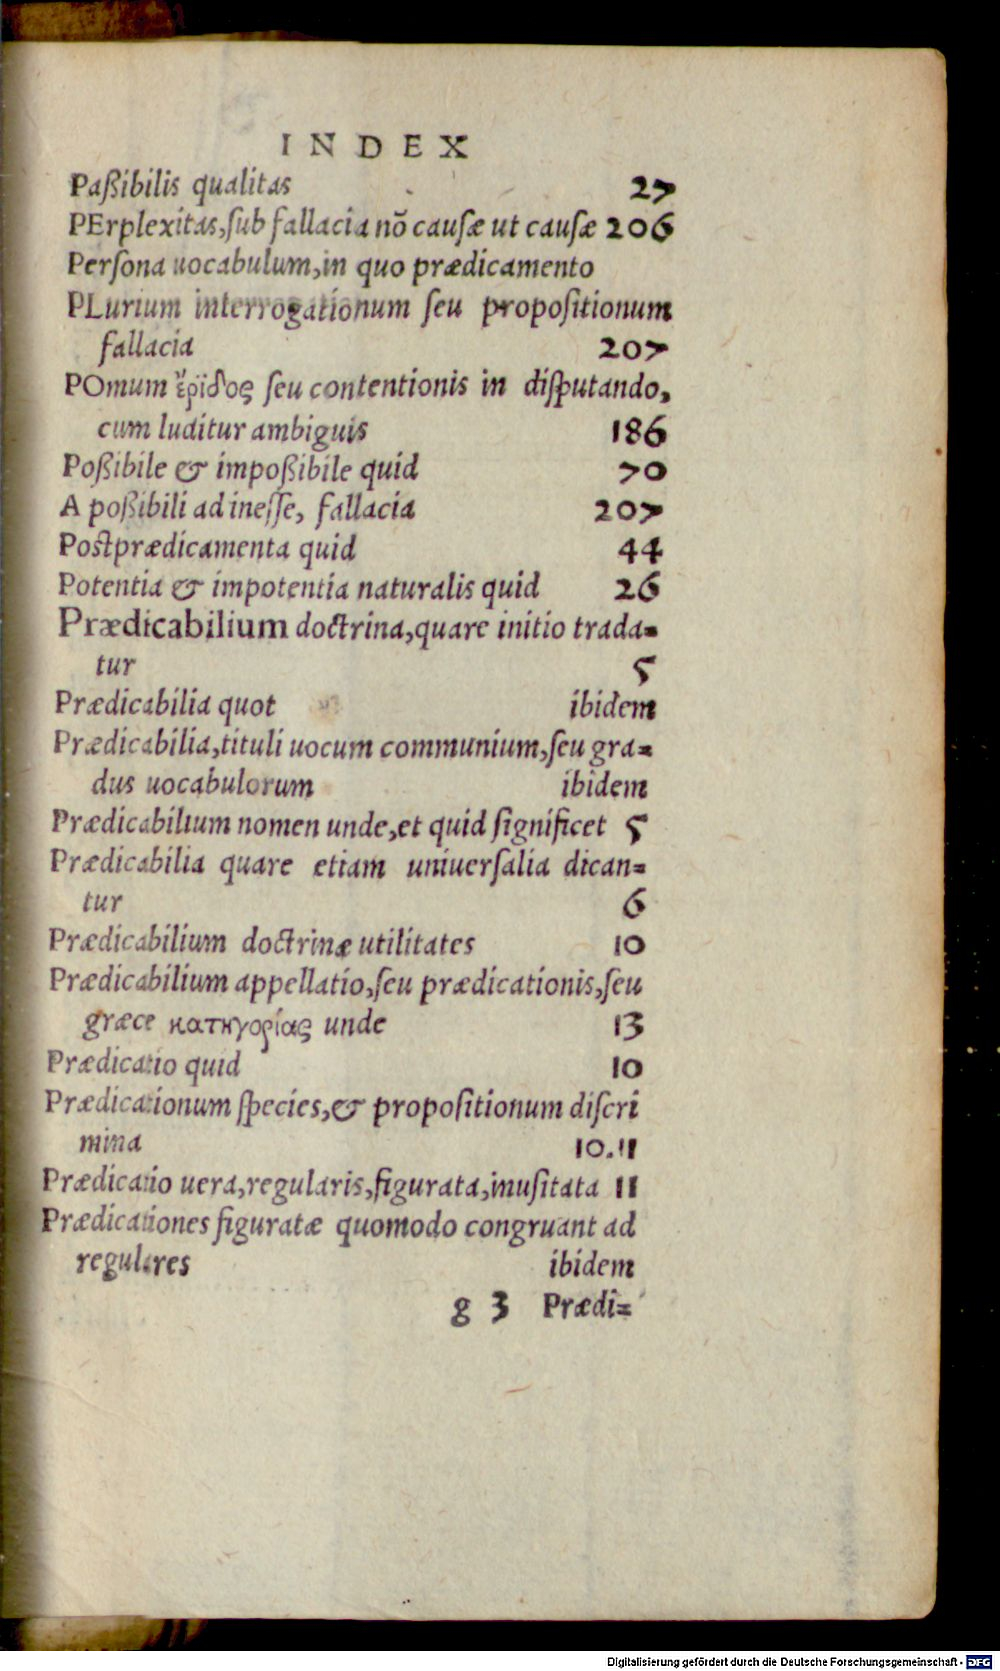 INDEX
Paßibilis qualitas 27
PErplexitas,ſub fallacia nõ cauſæ ut cauſæ 206
Perſona uocabulum,in quo prædicamento
PLurium interrogationum ſeu propoſitionum
fallacia 207
POmum ἔριδος ſeu contentionis in diſputando,
cum luditur ambiguis 186
Poßibile & impoßibile quid 70
A poßibili ad ineſſe, fallacia 207
Poſtprædicamenta quid 44
Potentia & impotentia naturalis quid 26
Prædicabilium doctrina,quare initio trada=
tur 5
Prædicabilia quot ibidem
Prædicabilia,tituli uocum communium,ſeu gra=
dus uocabulorum ibidem
Prædicabilium nomen unde,et quid ſignificet 5
Prædicabilia quare etiam uniuerſalia dican=
tur 6
Prædicabilium doctrinæ utilitates 10
Prædicabilium appellatio,ſeu prædicationis,ſeu
græce κατηγορίας unde 13
Prædicatio quid 10
Prædicationum ſpecies,& propoſitionum diſcri
mina 10.11
Prædicatio uera,regularis,figurata,inuſitata 11
Prædicationes figuratæ quomodo congruant ad
regulares ibidem
g 3 Prædi=
Digitalisierung gefördert durch die Deutsche Forschungsgemeinschaft - DFG